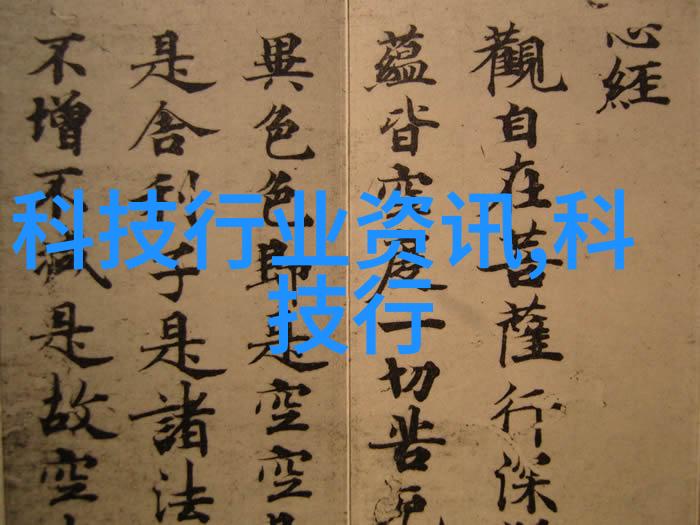 心經
觀自在菩薩行深
蘊皆空度一切苦厄
異色色即是空空
是舍利子是諸法
不增不減是故空
科技行业资讯,科
技行